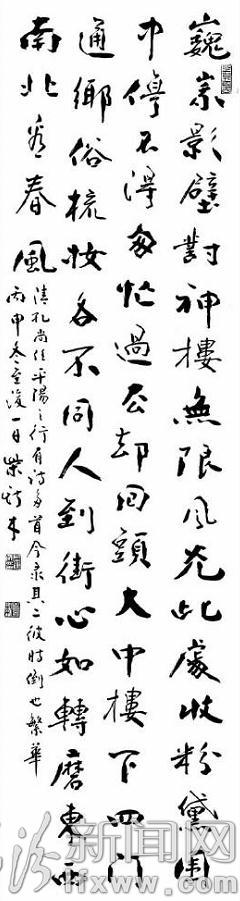 巍崇影壁對神樓無限風光此處收粉黛圍
中停不得匆忙過去却回頭大中樓下四門
通鄉俗梳妝各不同人到街心如轉磨東西
南北看春風
清孔尚任平陽之行有詩多首今录其二彼時倒也繁華
丙申冬至後一日柴
汾新闻网
lfxww.com